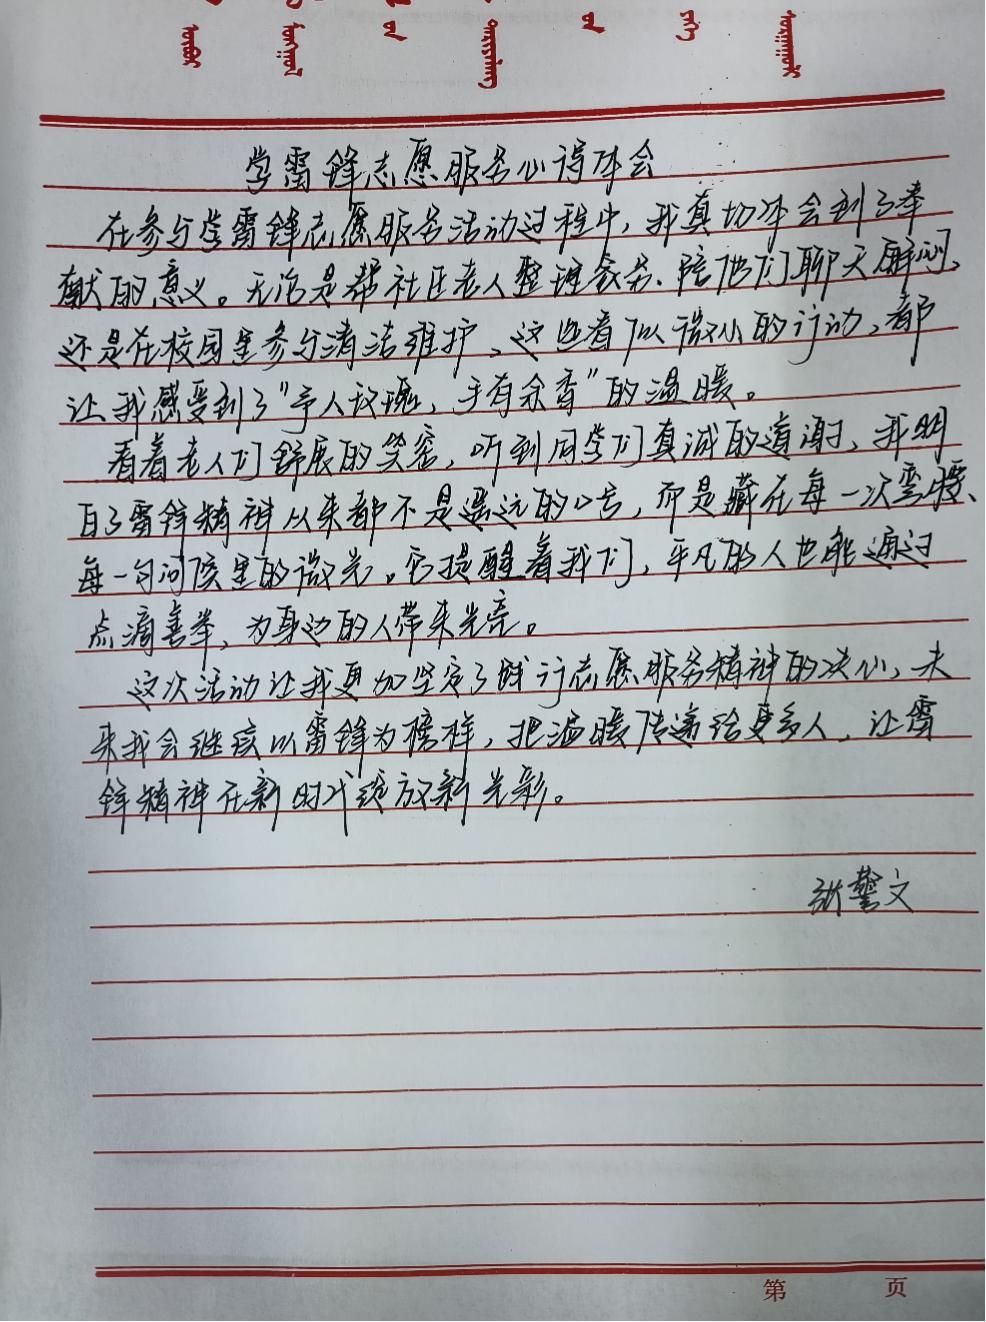 学雷锋志愿服务心得体会
在参与学雷锋志愿服务活动过程中，我真切体会到了奉
献的意义。无论是帮社区老人整理家务、陪他们聊天解闷，
还是在校园里参与清洁维护，这些看似微小的行动，都
让我感受到了“予人玫瑰，手有余香”的温暖。
看着老人们舒展的笑容，听到同学们真诚的道谢，我明
白了雷锋精神从来都不是遥远的口号，而是藏在每一次弯腰、
每一句问候里的微光。它提醒着我们，平凡的人也能通过
点滴善举，为身边的人带来光亮。
这次活动让我更加坚定了践行志愿服务精神的决心，未
来我会继续以雷锋为榜样，把温暖传递给更多人，让雷
锋精神在新时代绽放新光彩。
张警文
第 页